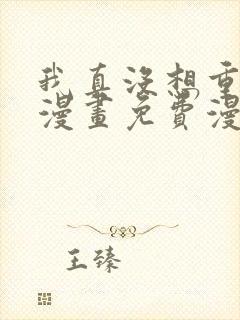 我真没想重
漫畫免費漫
王臻